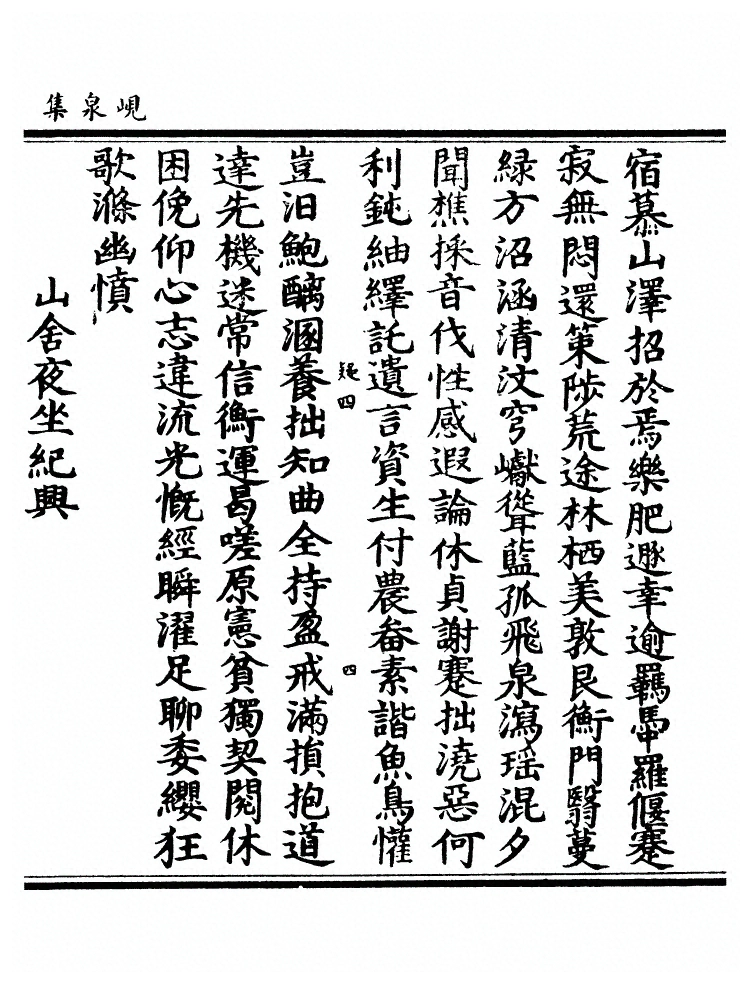 峴泉集
宿慕山澤招於焉樂肥遯幸逾羈馽羅偃蹇
寂無悶還策陟荒途林栖美敦艮衡門翳蔓
緑方沼涵清汶穹巘聳藍孤飛泉瀉瑶混夕
聞樵採音伐性感遐論休貞謝蹇拙澆惡何
利鈍紬繹託遺言資生付農畚素諧魚鳥懽
疑四
四
豈汨鮑醨涵養拙知曲全持盈戒滿損抱道
達先機迷常信衡運曷嗟原憲貧獨契閱休
困俛仰心志違流光慨經瞬濯足聊委纓狂
歌滌幽憤
山舍夜坐紀興